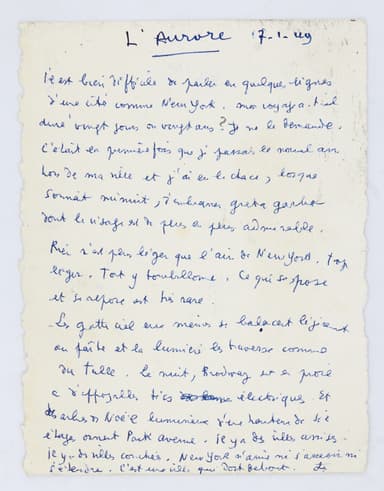 L'Aurore 7-1-49
Il est bien difficile de parler en quelques lignes
d'une cité comme New York. mon voyage a-t-il
duré vingt jours ou vingt ans? Je me le demande.
C'était la première fois que je passais le nouvel an
hors de ma ville et j'ai eu la chance, lorsque
sonnait minuit, d'embrasser greta garbo
dont le visage est de plus en plus admirable.
Rien n'est plus léger que l'air de New York. trop
léger. Tout y tourbillonne. Ce qui se pose
et se repose est très rare.
Les gratte ciel eux mêmes se balancent légèrement
au faîte et la lumière les traverse comme
du tulle. La nuit, Brodway est en proie
à d'effroyables tics électriques. Et
des arbres de Noël lumineux d'une hauteur de six
étages ornent Park Avenue. Il y a des villes assises.
Il y a des villes couchées. New York n'aime ni s'asseoir ni
s'étendre. C'est une ville qui dort debout.